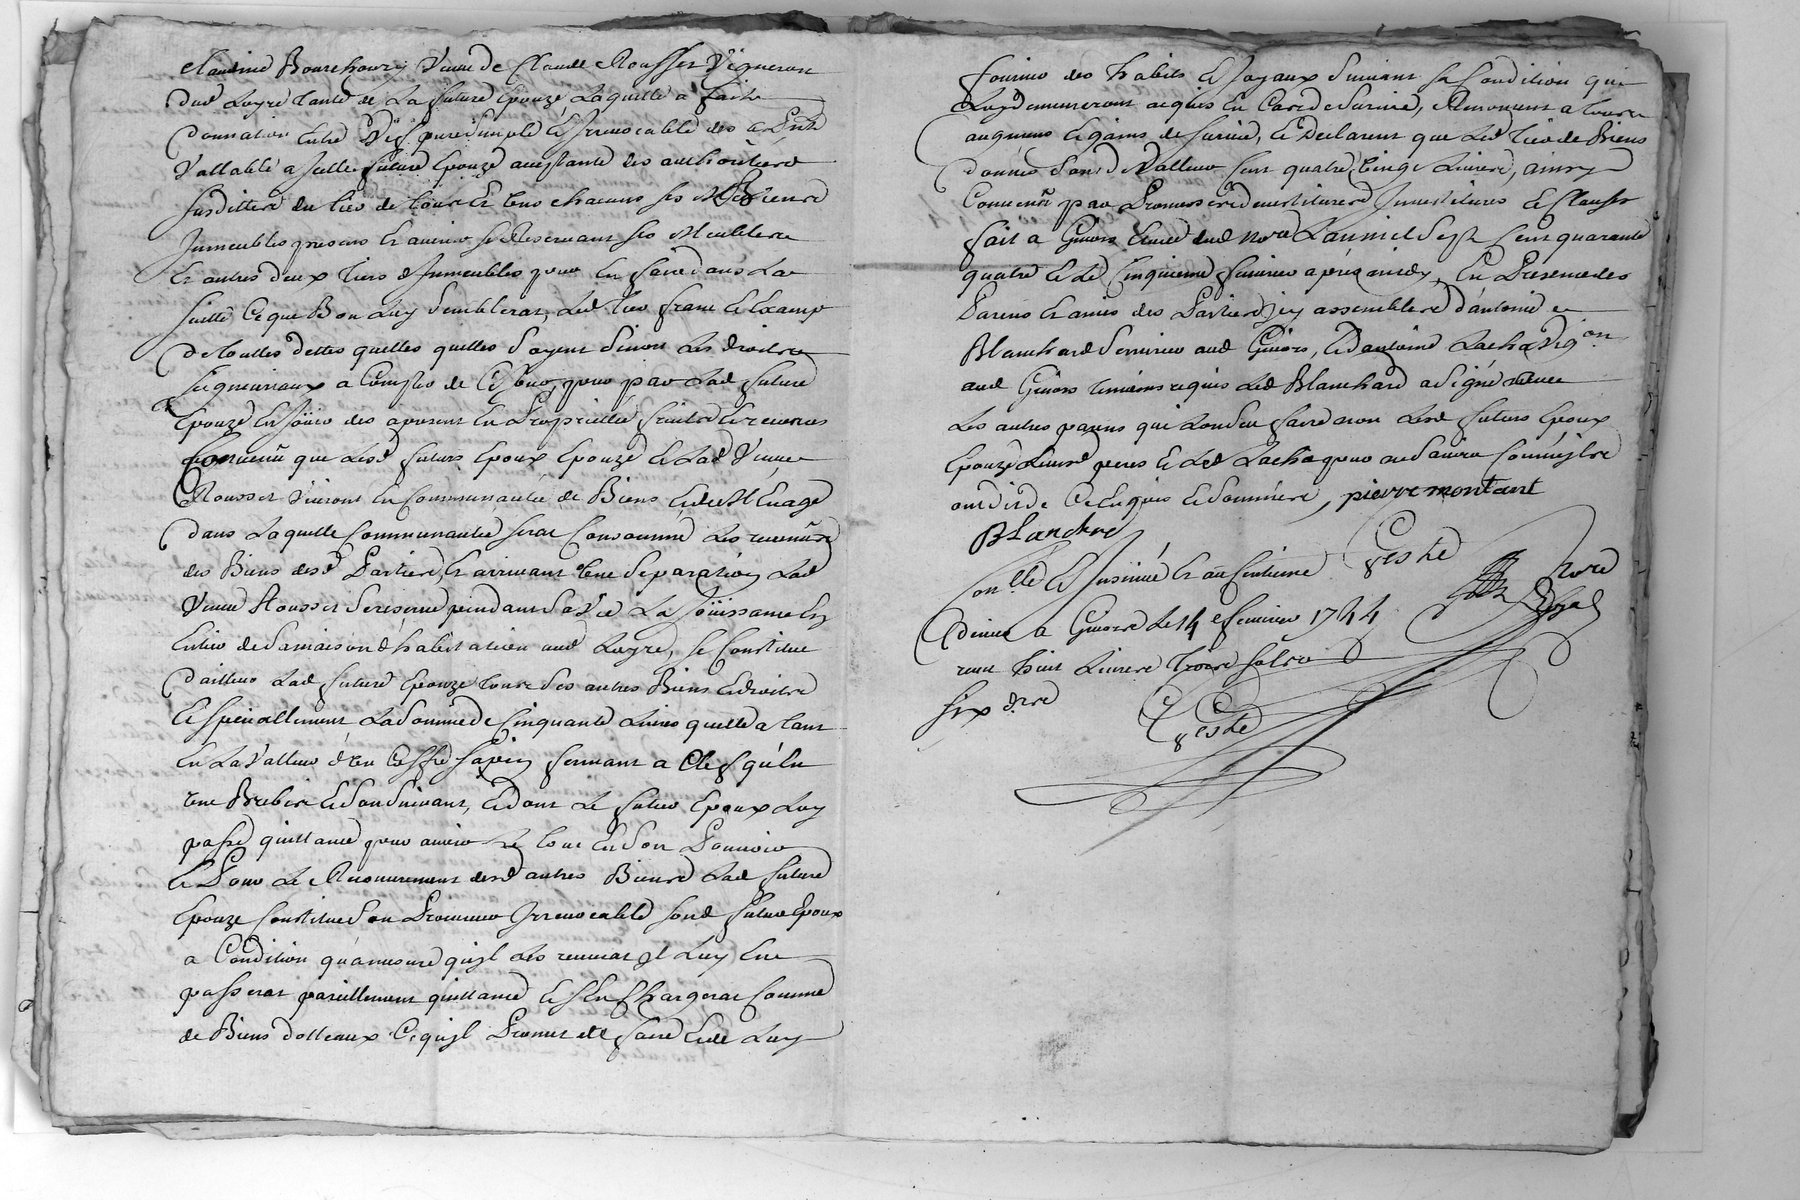 Claudine Bourchany Veuve de Claude Rousset Vigneron
dud Loyre tante de la future Epouze Laquelle a faitte
donnation Entre Vifs pure Simple et Irrevocable des a pnt
Vallable a Jcelle future Epouze acceptante des authorittes
susdittes du tiers de tous Et Uns chacuns ses Biens
Jmmeubles presens Et avenir se Reservant ses Meubles
Et autres deux tiers d'Jmmeubles pour En faire dans la
suitte Ce que Bon Luy Semblerat, Led tiers franc et Exempt
de touttes dettes quelles quelles Soyent Sinon Les droits
seigneuriaux a Compter de Ce Jour, pour par Lad future
Epouze En Jouir des apresent En Proprietté fruits et revenus
Convenu que Lesd futurs Epoux Epouze et Lad Veuve
Rousset Vivront En Communauté de Biens et de Menage
dans Laquelle Communauté serat Consommé Les revenus
des Biens desd Parties, Et arrivant Une Separation Lad
Veuve Rousset se reserve pendant Sa Vie La Joüissance En
Entier de Sa maison d'habitation aud Loyre, se Constitue
d'ailleur Lad future Epouze tous Ses autres Biens et droits
et specialement La Somme de Cinquante Livres quelle a tant
En La Valleur d'Un Coffre Sapin fermant a Clef qu'En
Une Brebis et Son Suivant, et dont Le futur Epoux Luy
passe quittance pour avoir Le tout En Son Pouvoir
et Pour Le Recouvrement desd autres Biens Lad future
Epouze Constitue Son Procureur Jrrevocable Sond futur Epoux
a Condition qu'amesure qu'jl Les recevrat Jl Luy En
passerat pareillement quittance et S'En Chargerat Comme
de Biens dotteaux Ce qu'jl Promet de faire et de Luy
fournir des habits et Joyaux Suivant sa Condition qui
Luy demeureront acquis En Cas de Survie, Renoncent a tous
augmens et gains de survie, et Declarent que Led tiers de Biens
donnés Sont de Valleur Cent quatre Vingt Livres, ainsy
Convenu par Promesses Jnvestitures et Clauses
fait a Givors Etude dud Nore L'an mil Sept Cent quarante
quatre et Le Cinquieme fevrier après midy, En Presence des
Parens Et amis des Parties Jcy assemblés d'antoine
Blanchard Serrurier aud Givors, et d'antoine Lacha Vigon
aud Givors temoins requis Led Blanchard a Signé
Les autres parens qui L'ont Sçu faire non Lesd futurs Epoux
Epouze Leurs peres et Led Lacha pour ne Savoir Comme jls
ont dit de Ce Enquis et Sommés, pierre montant
Blanchard
Con.lle et Jnsinué Et au Centieme
denier a Givors Le 14 e fevrier 1744
reçu huit Livres treize Sols
six d.rs
Geste
Nore
Royal
Geste